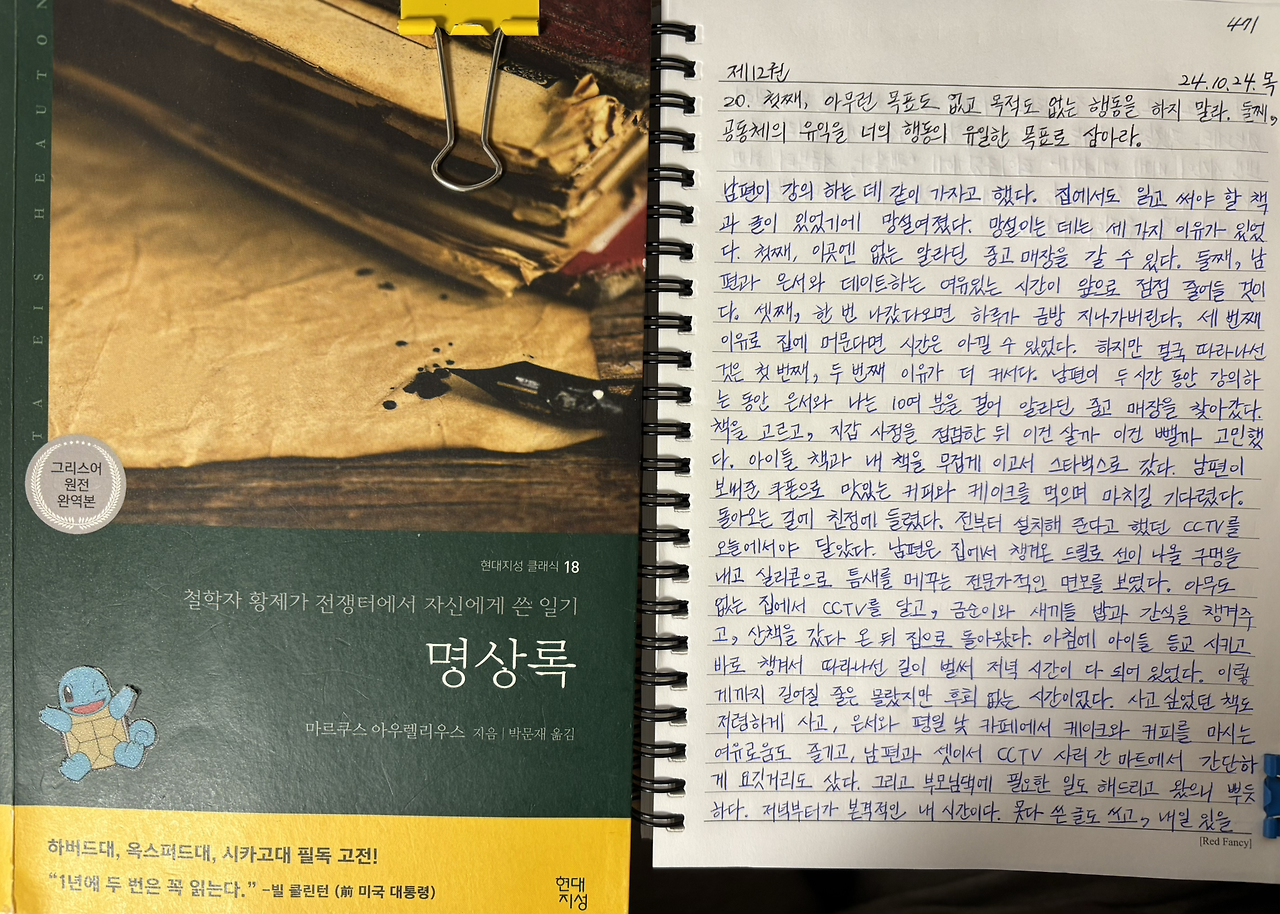 TA EIS HEAUTON
그리스어
원전
완역본
현대지성 클래식 18
철학자 황제가 전쟁터에서 자신에게 쓴 일기
명상록
마르쿠스 아우렐리우스 지음 | 박문재 옮김
하버드대, 옥스퍼드대, 시카고대 필독 고전!
“1년에 두 번은 꼭 읽는다.” -빌 클린턴 (前 미국 대통령)
현대
지성
471
제12권
24.10.24.목
20. 첫째, 아무런 목표도 없고 목적도 없는 행동을 하지 말라. 둘째,
공동체의 유익을 너의 행동의 유일한 목표로 삼아라.
남편이 강의 하는 데 같이 가자고 했다. 집에서도 읽고 써야 할 책
과 글이 있었기에 망설여졌다. 망설이는 데는 세 가지 이유가 있었
다. 첫째, 이곳엔 없는 알라딘 중고 매장을 갈 수 있다. 둘째, 남
편과 은서와 데이트하는 여유있는 시간이 앞으로 점점 줄어들 것이
다. 셋째, 한 번 나갔다오면 하루가 금방 지나가버린다. 세 번째
이유로 집에 머문다면 시간은 아낄 수 있었다. 하지만 결국 따라나선
것은 첫 번째, 두 번째 이유가 더 커서다. 남편이 두 시간 동안 강의하
는 동안 은서와 나는 10여 분을 걸어 알라딘 중고 매장을 찾아갔다.
책을 고르고, 지갑 사정을 점검한 뒤 이건 살까 이건 뺄까 고민했
다. 아이들 책과 내 책을 무겁게 이고서 스타벅스로 갔다. 남편이
보내준 쿠폰으로 맛있는 커피와 케이크를 먹으며 마치길 기다렸다.
돌아오는 길에 친정에 들렸다. 전부터 설치해 준다고 했던 CCTV를
오늘에서야 달았다. 남편은 집에서 챙겨온 드릴로 선이 나올 구멍을
내고 실리콘으로 틈새를 메꾸는 전문가적인 면모를 보였다. 아무도
없는 집에서 CCTV를 달고, 금순이와 새끼들 밥과 간식을 챙겨주
고, 산책을 갔다 온 뒤 집으로 돌아왔다. 아침에 아이들 등교 시키고
바로 챙겨서 따라나선 길이 벌써 저녁 시간이 다 되어 있었다. 이렇
게까지 길어질 줄은 몰랐지만 후회 없는 시간이었다. 사고 싶었던 책도
저렴하게 사고, 은서와 평일 낮 카페에서 케이크와 커피를 마시는
여유로움도 즐기고, 남편과 셋이서 CCTV 사러 간 마트에서 간단하
게 요깃거리도 샀다. 그리고 부모님댁에 필요한 일도 해드리고 왔으니 뿌듯
하다. 저녁부터가 본격적인 내 시간이다. 못다 쓴 글도 쓰고, 내일 있을
[Red Fancy]